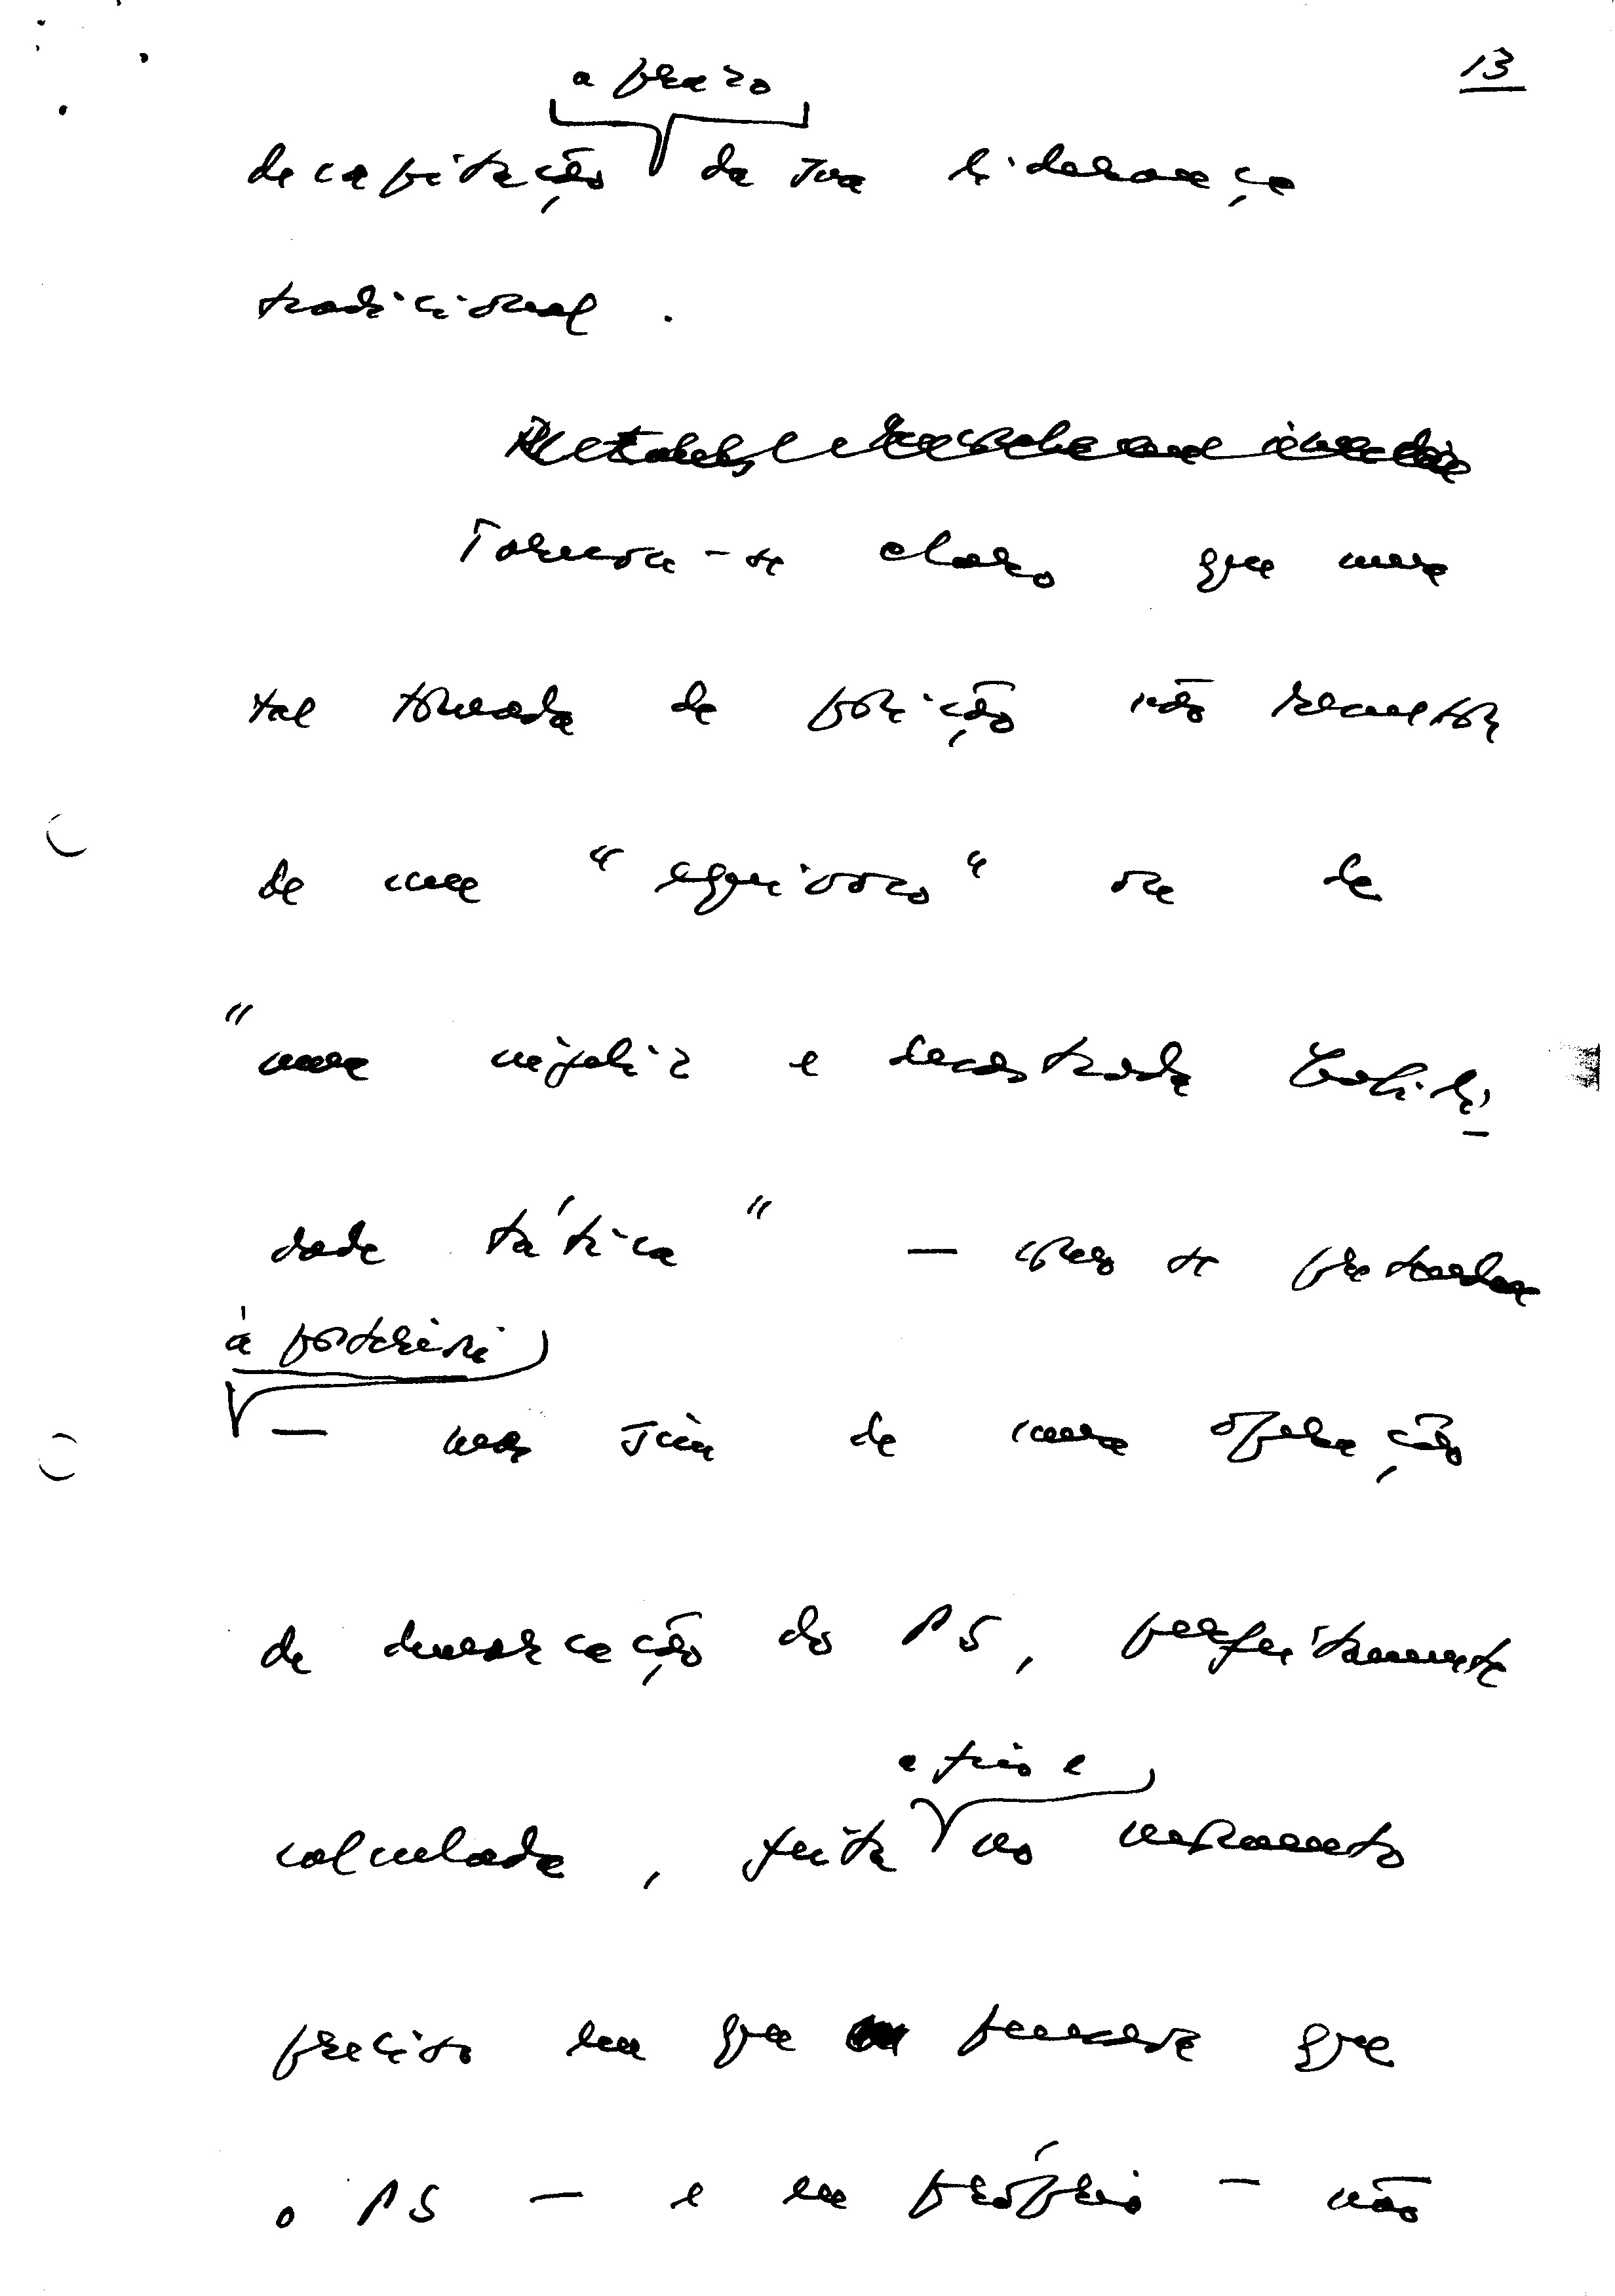 13
a prazo
decapitação da sua liderança
tradicional.
Tornou-se claro que uma
tal tomada de posição não resultou
de um "equívoco" ou de
"uma infeliz e desastrada habili-
dade táctica" — como se pretendeu
à posteriori
— mas sim de uma operação
de demarcação do PS, perfeitamente
calculada, feita no momento
a frio e
preciso em que pensava que
o PS — e eu próprio — não